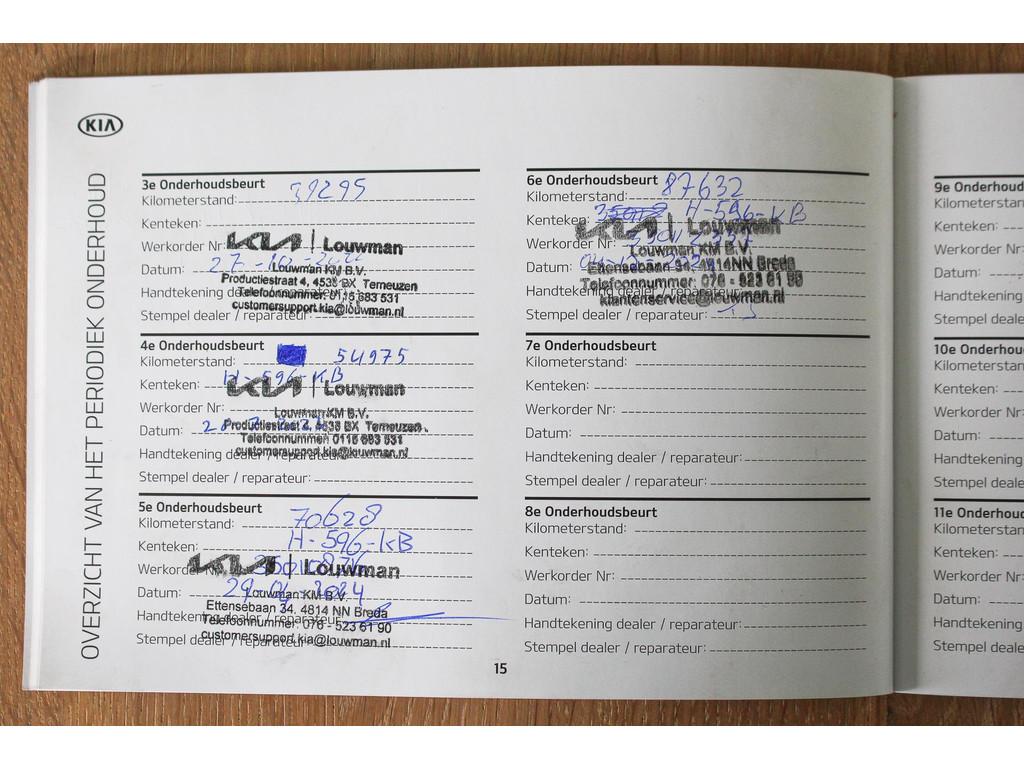 KIA
OVERZICHT VAN HET PERIODIEK ONDERHOUD
3e Onderhoudsbeurt
Kilometerstand: 39295
Kenteken:
Werkorder Nr:
KIA | Louwman
Datum: 27-10-2022
Louwman KM B.V.
Productiestraat 4, 4538 BX Terneuzen
Handtekening dealer / reparateur:
Telefoonnummer: 0115 683 531
customersupport.kia@louwman.nl
Stempel dealer / reparateur:
4e Onderhoudsbeurt
Kilometerstand: 54975
Kenteken: H-596-KB
KIA | Louwman
Werkorder Nr:
Louwman KM B.V.
Datum:
Productiestraat 4, 4538 BX Terneuzen
Telefoonnummer: 0115 683 531
Handtekening dealer / reparateur:
customersupport.kia@louwman.nl
Stempel dealer / reparateur:
5e Onderhoudsbeurt
Kilometerstand: 70628
Kenteken: H-596-KB
Werkorder Nr:
KIA | Louwman
Datum: 29-04-2024
Louwman KM B.V.
Ettensebaan 34, 4814 NN Breda
Handtekening dealer / reparateur:
Telefoonnummer: 076 - 523 61 90
customersupport.kia@louwman.nl
Stempel dealer / reparateur:
6e Onderhoudsbeurt
Kilometerstand: 87632
Kenteken: H-596-KB
KIA | Louwman
Werkorder Nr:
Louwman KM B.V.
Datum:
Ettensebaan 34, 4814NN Breda
Telefoonnummer: 076 - 523 61 90
Handtekening dealer / reparateur:
klantenservice@louwman.nl
Stempel dealer / reparateur:
7e Onderhoudsbeurt
Kilometerstand:
Kenteken:
Werkorder Nr:
Datum:
Handtekening dealer / reparateur:
Stempel dealer / reparateur:
8e Onderhoudsbeurt
Kilometerstand:
Kenteken:
Werkorder Nr:
Datum:
Handtekening dealer / reparateur:
Stempel dealer / reparateur:
15
9e Onderhoud
Kilometerstan
Kenteken:
Werkorder Nr:
Datum:
Handtekening
Stempel deale
10e Onderhou
Kilometerstan
Kenteken:
Werkorder Nr:
Datum:
Handtekening
Stempel deale
11e Onderhou
Kilometerstan
Kenteken:
Werkorder Nr:
Datum:
Handtekening
Stempel deale